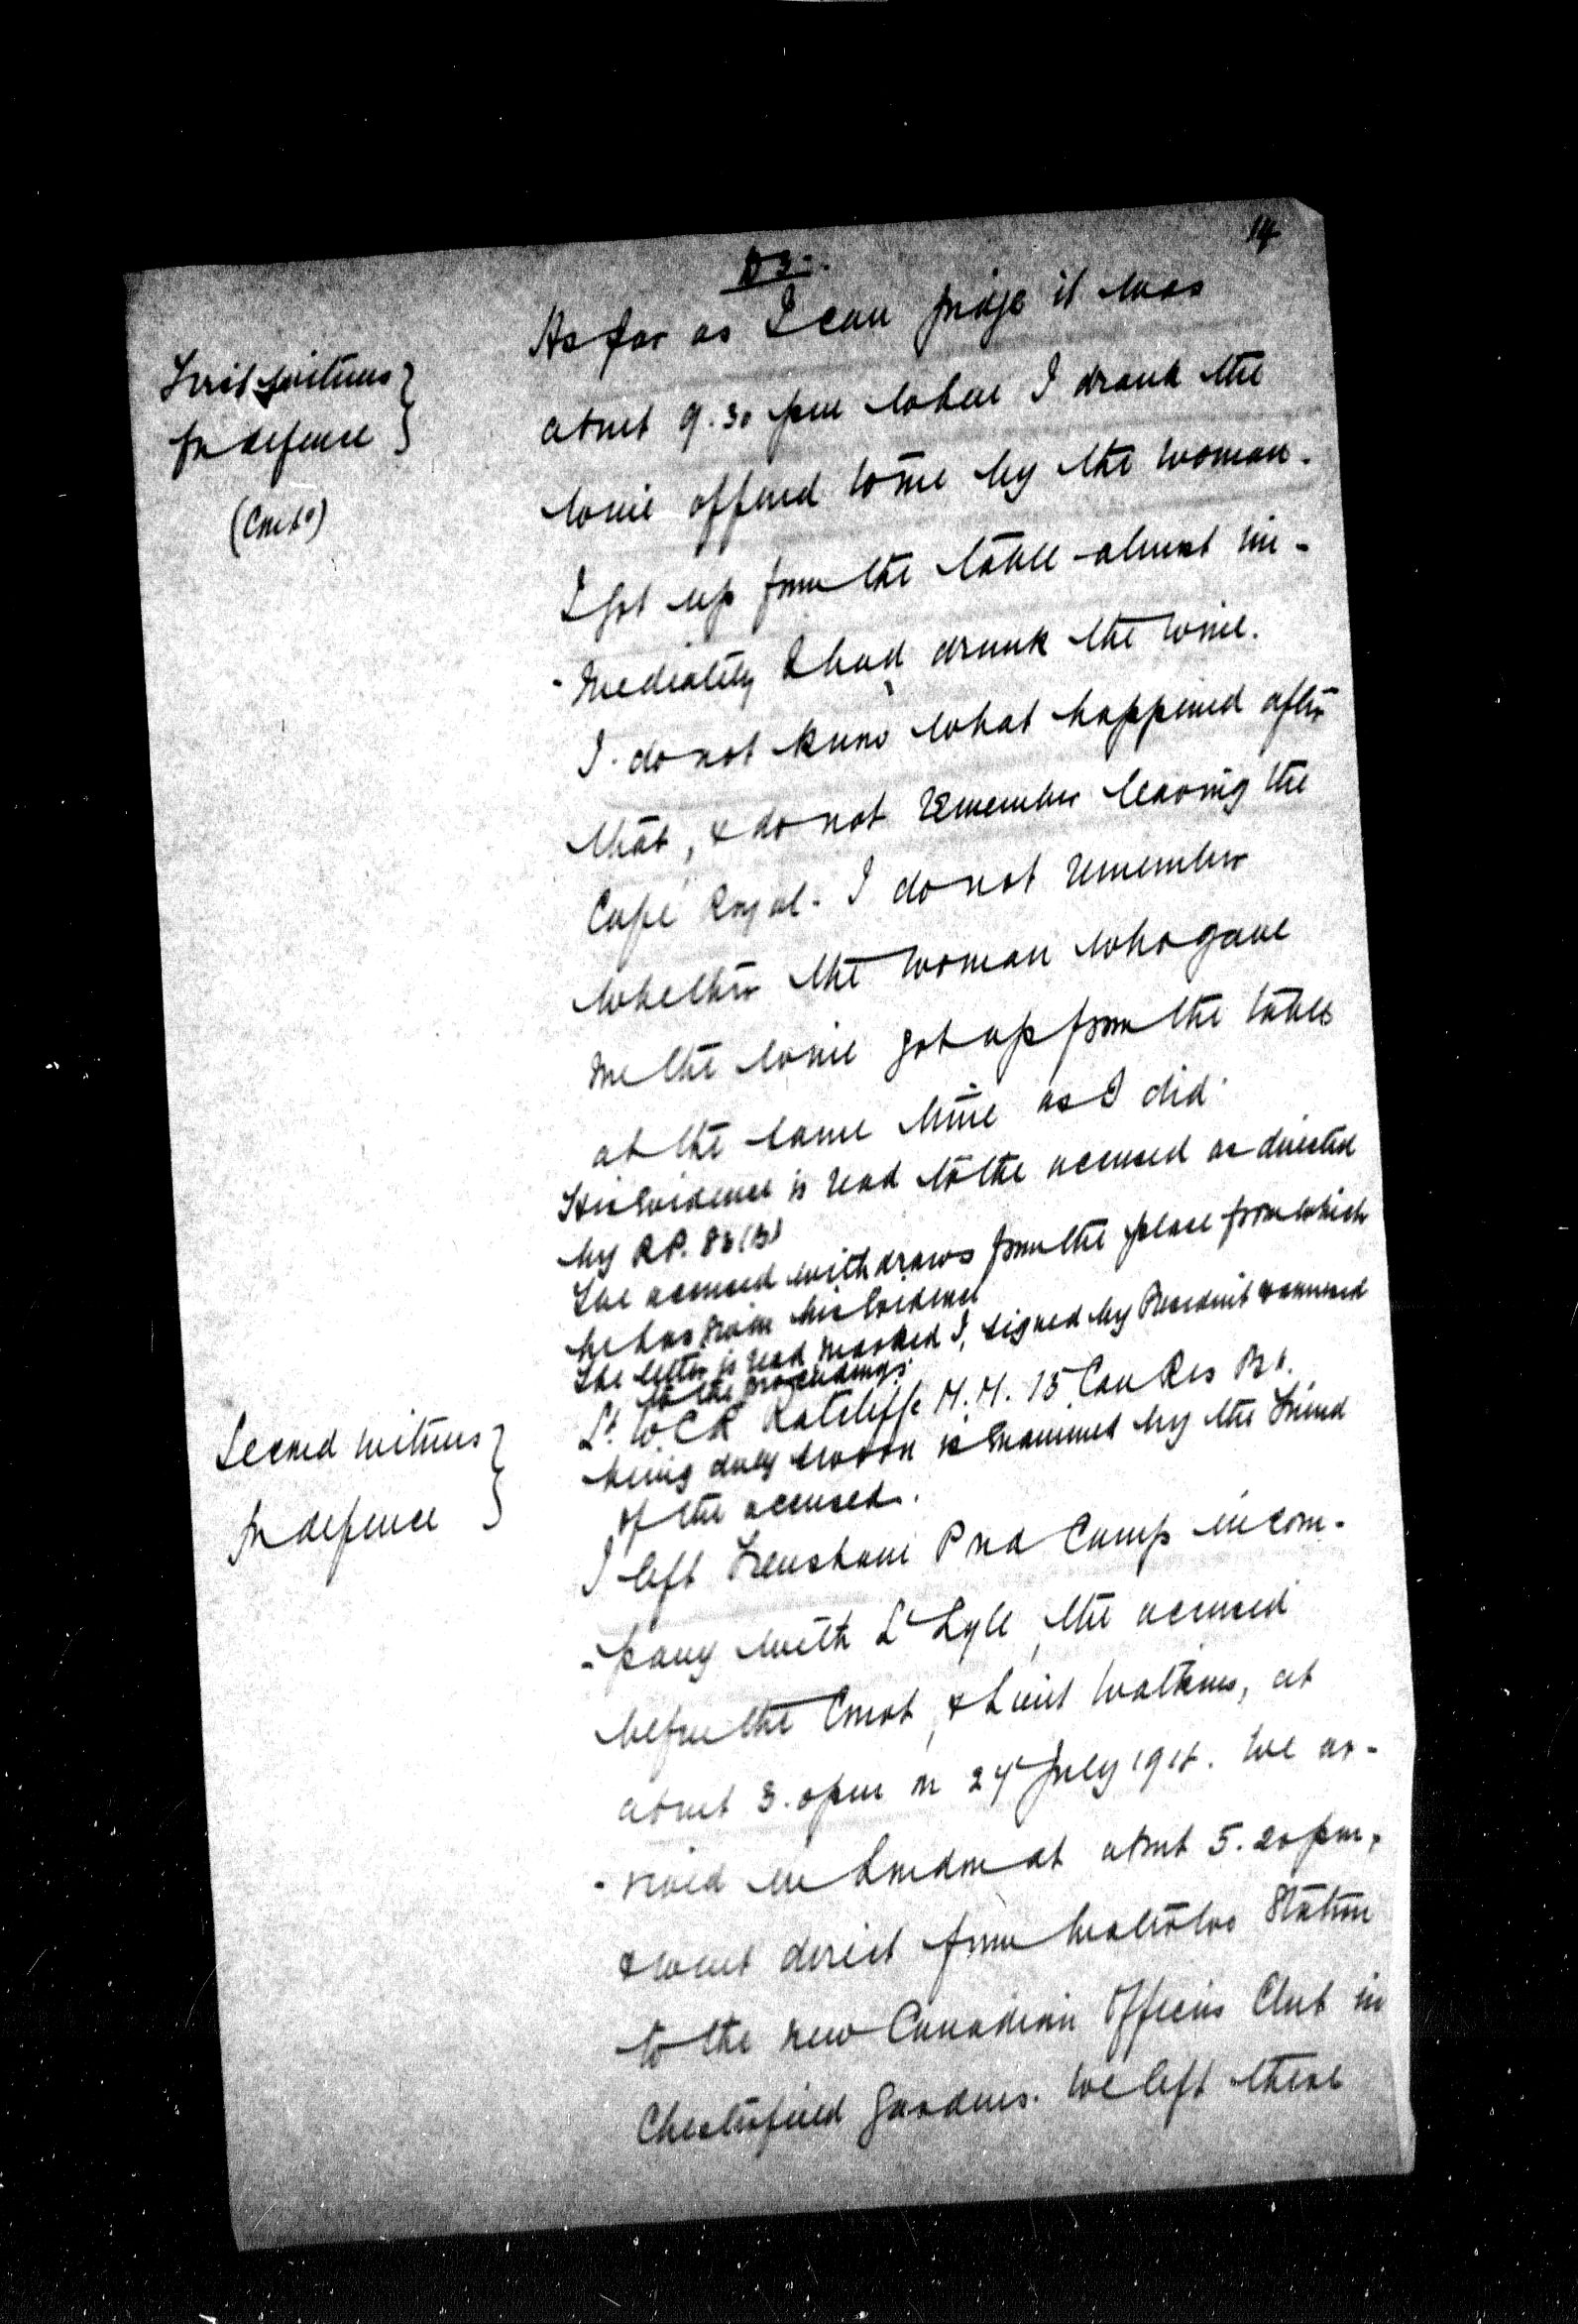 14
D 3.
As far as I can judge it was
First witness
for defence
(Contd)
about 9.30 pm when I drank the
wine offered to me by the woman.
I got up from the table almost im-
-mediately I had drunk the wine.
I do not know what happened after
that, & do not remember leaving the
Café Royal. I do not remember
whether the woman who gave
me the wine got up from the table
at the same time as I did.
His evidence is read to the accused as directed
by R.P. 83(B)
The accused withdraws from the place from which
he has given his evidence
The letter is read, marked I, signed by President & annexed
to the proceedings.
Second witness
for defence
Lt. W.C.R. Ratcliffe M.M. 15 Can Res Bn.
being duly sworn is examined by the friend
of the accused.
I left Frensham Pond Camp in com-
-pany with Lt Lyle, the accused
before the Court, & Lieut Watkins, at
about 3.0 pm on July 1918. We ar-
-rived in London at about 5.20 pm,
& went direct from Waterloo Station
to the new Canadian Officers Club in
Chesterfield Gardens. We left there